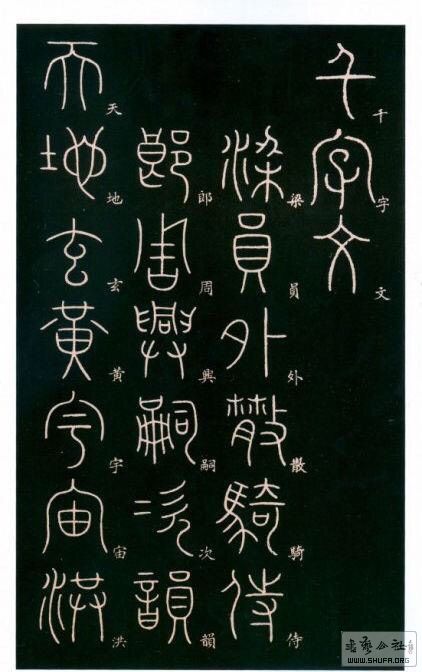 千字文
梁員外散騎侍
郎周興嗣次韻
天地玄黃宇宙洪
千字文
梁員外散騎侍
郎周興嗣次韻
天地玄黃宇宙洪
書藝公社
WWW.SHUFA.ORG